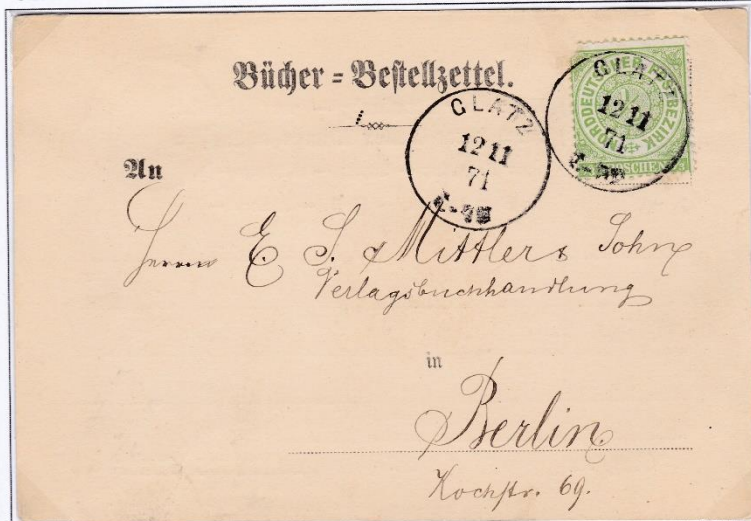 Bücher=Bestellzettel.
GLATZ
12 11
71
GLATZ
12 11
71
NORDDEUTSCHER POSTBEZIRK
GROSCHEN
An
Herren E. S. Mittler & Sohn
Verlagsbuchhandlung
in
Berlin
Kochstr. 69.